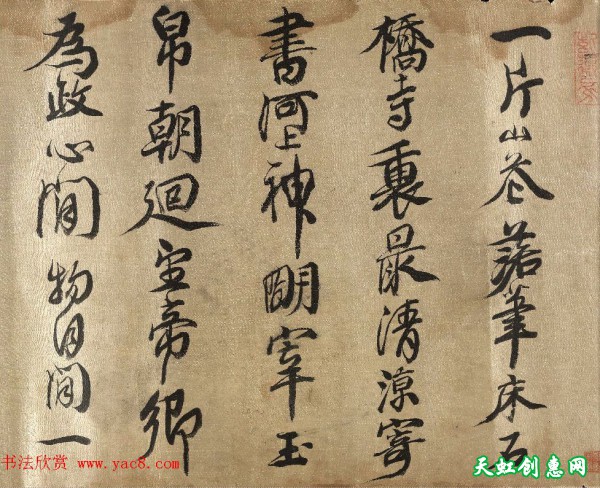 一片山花落筆床石
橋寺裏最清涼寄
書河上神明宰玉
帛朝迴望帝鄉
為政心閒物自閒一
书法欣赏 www.yac8.com
天虹创惠网